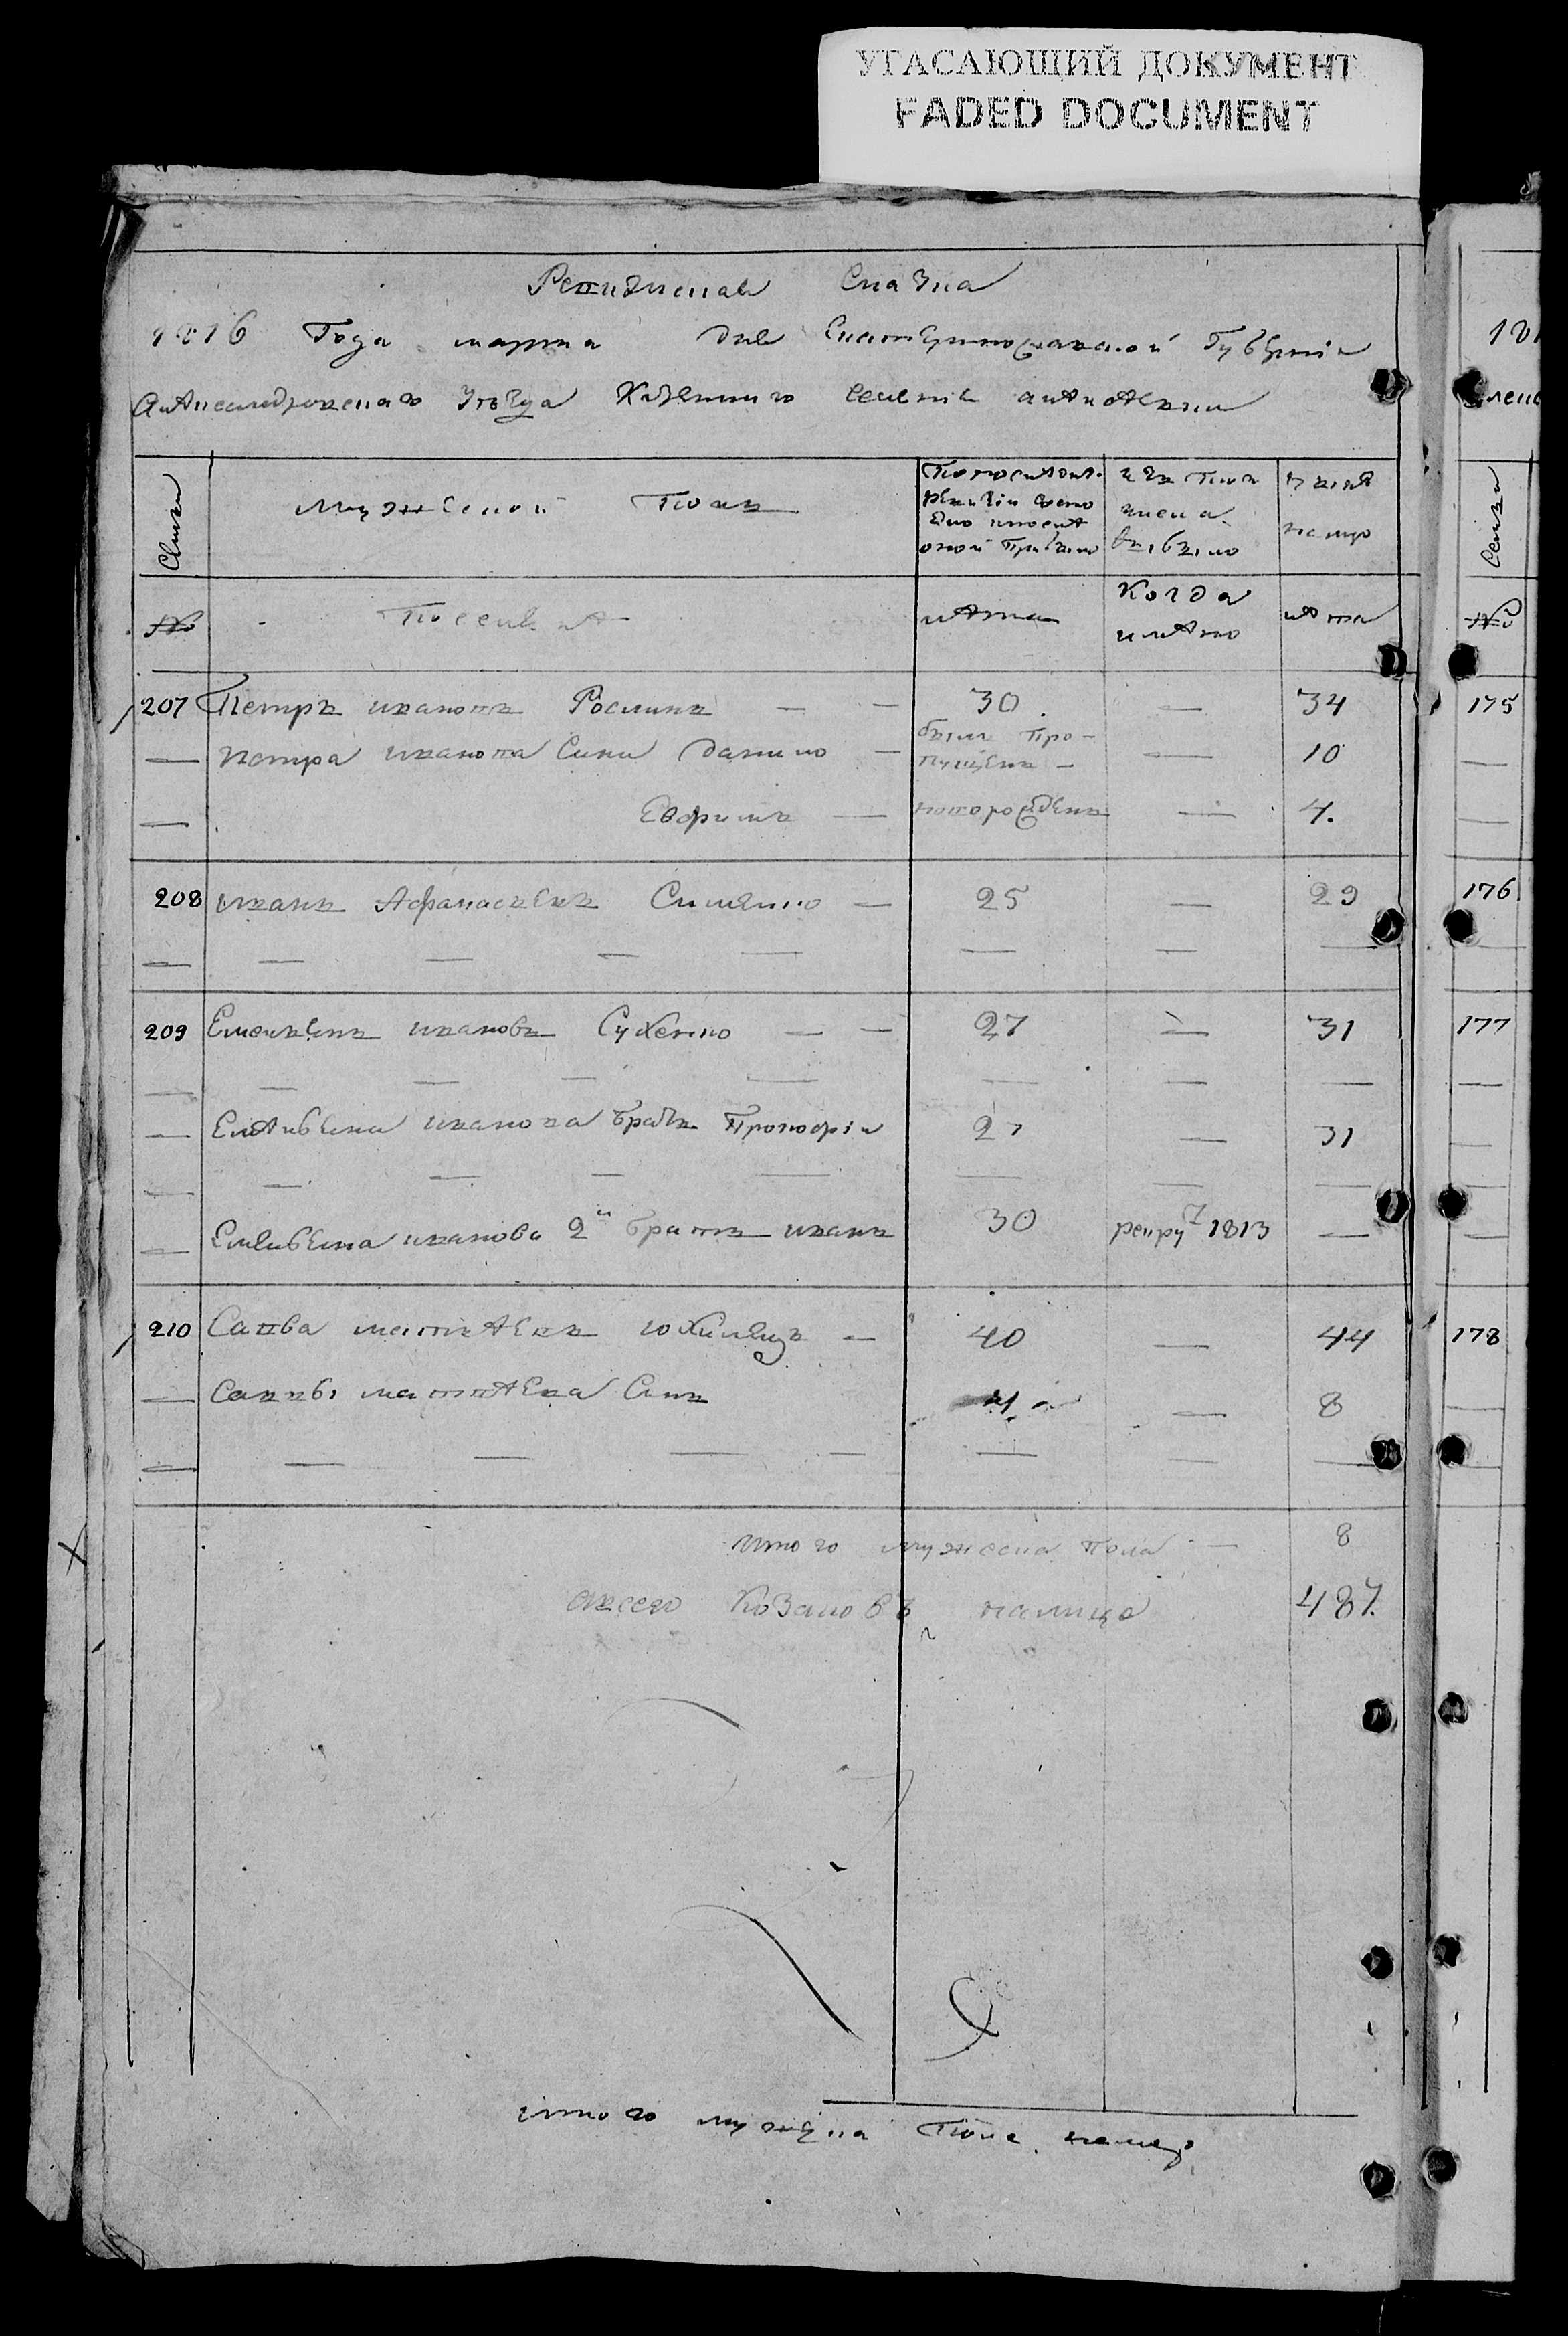 УГАСАЮЩИЙ ДОКУМЕНТ
FADED DOCUMENT
Ревизская Сказка
1816 Года марта дня Екатеринославской Губернии
Александровского Уезда Казенного селения
Семьи
мужеской полъ
По последней
ревизии состо
яло и после
оной прибыло
изъ того
числа
выбыло
ныне
налицо
№
Поселянъ
лета
Когда
имянно
лета
207 Петръ ивановъ Рослик — — 30. — 34
— петра иванова Сини данило — былъ про-
пущенъ — — 10
— Ефримъ — новорожденъ — 4.
208 иванъ Афанасьевъ Сименко — 25 — 29
209 Емельянъ ивановъ Сухенко — — 27 — 31
— Емельяна иванова братъ Прокофiи 27 — 31
— Емельяна иванова 2й братъ иванъ 30 рекру 1813 —
210 Савва матвѣевъ юхимецъ — 40 — 44
— Саввы матвѣева Синъ 4 — 8
итого мужеска пола — 8
а всего Козаковъ налицо 487.
итого мужеска Пола налицо
Семьи
№
175
176
177
178